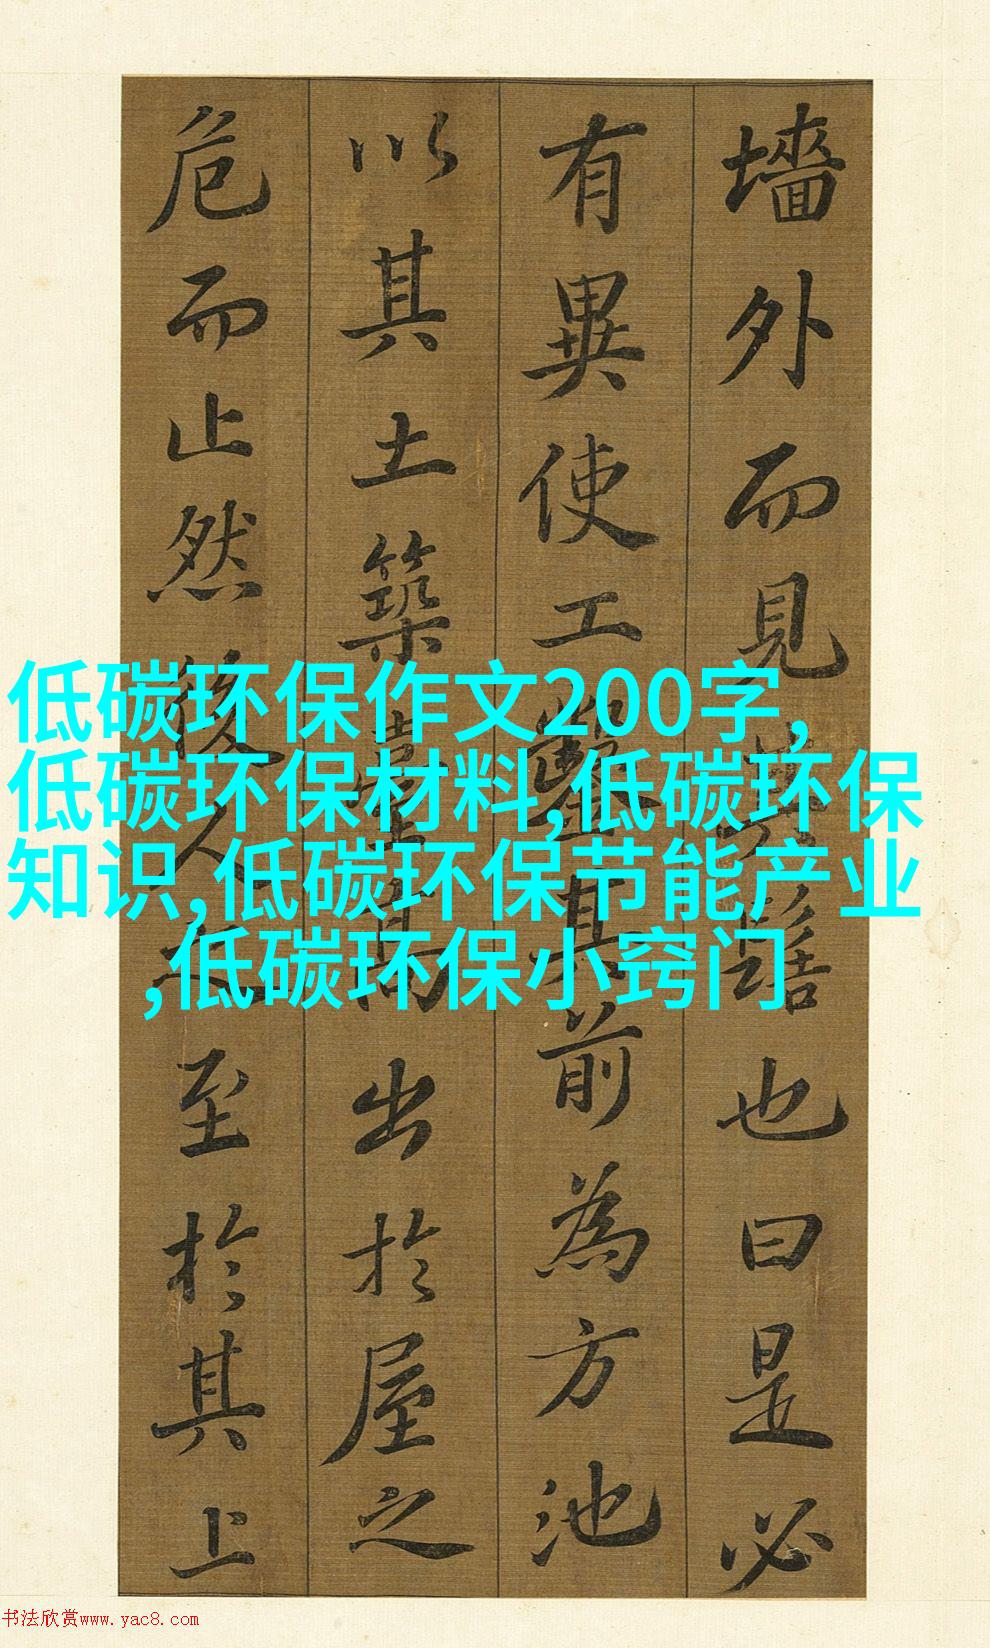 墻外而見其髻也曰是必
有異使工鑿其前為方池
以其土築臺高出於屋之
危而止然後人之至於其上
低碳环保作文200字,
低碳环保材料,低碳环保
知识,低碳环保节能产业
,低碳环保小窍门
书法欣赏www.yac8.com